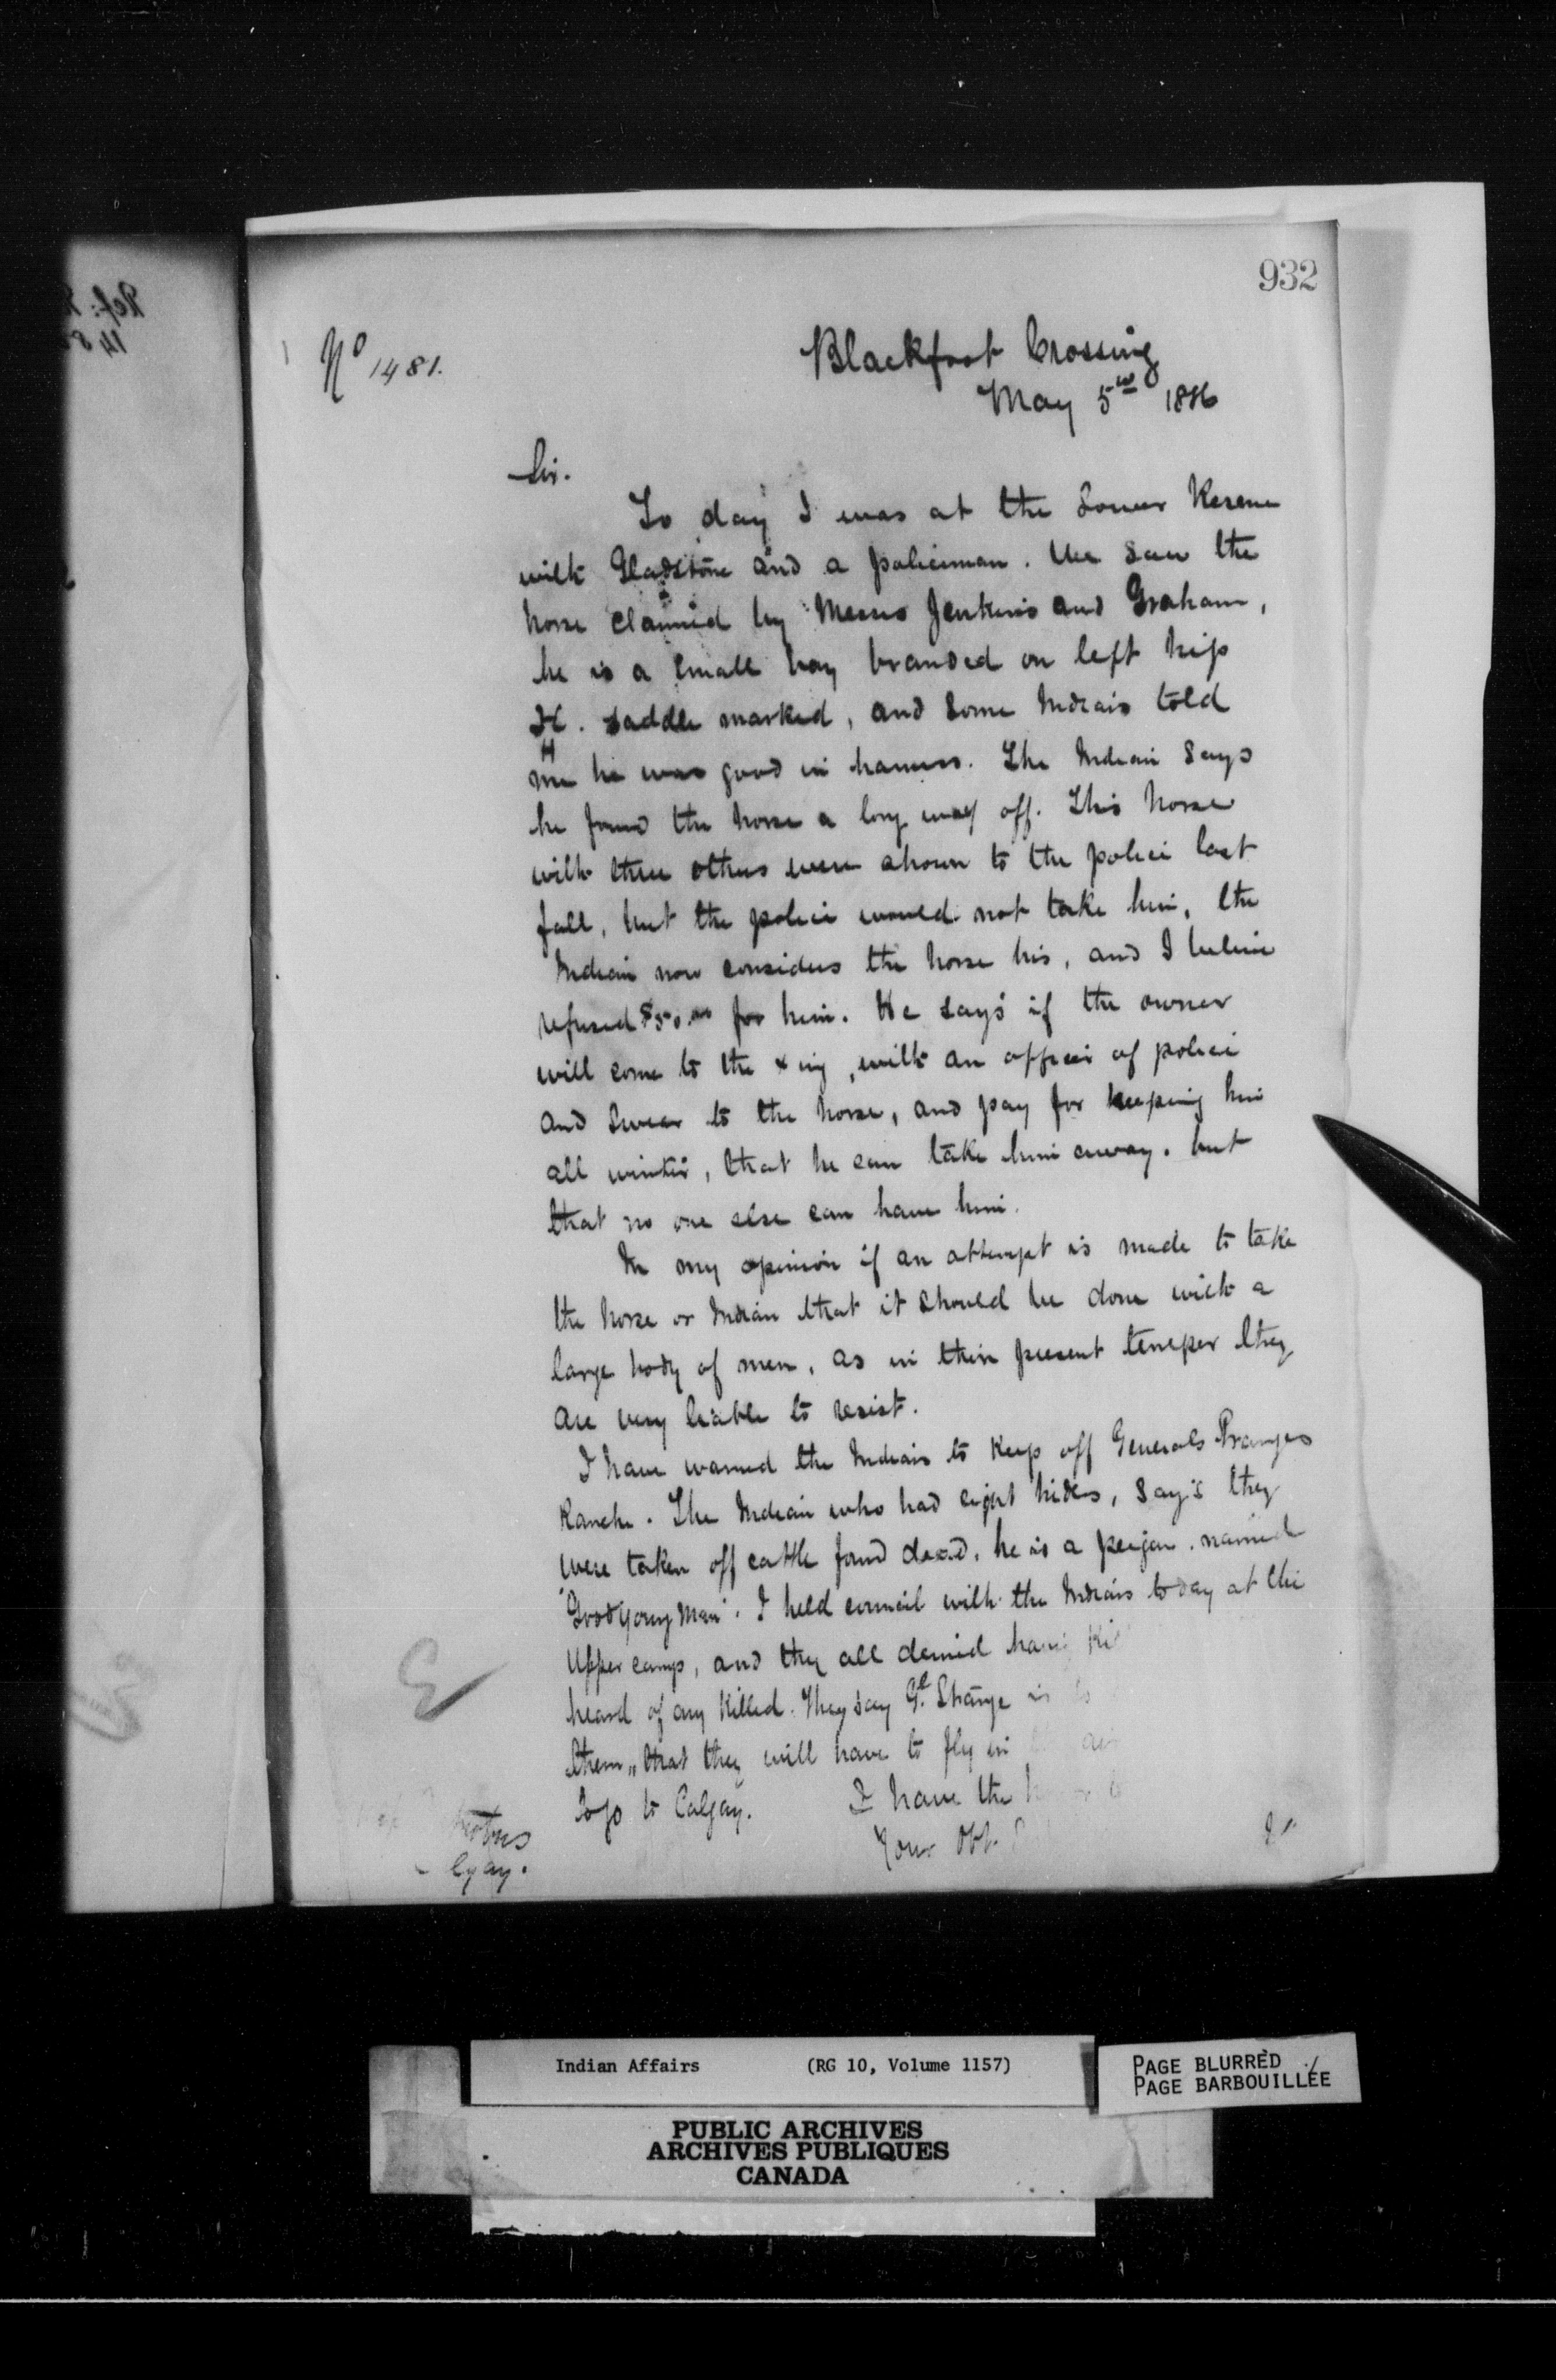 932
No 1481.
Blackfoot Crossing
May 5th 1886
Sir.
To day I was at the Lower Reserve
with Gladstone and a policeman. We saw the
horse claimed by Messrs Jenkins and Graham,
he is a small bay branded on left hip
H. saddle marked, and some Indians told
me he was good in harness. The Indian says
he found the horse a long way off. This horse
with three others were shown to the police last
fall, but the police would not take him, the
Indian now considers the horse his, and I believe
refused $50.00 for him. He say's if the owner
will come to the Xing, with an officer of police
and swear to the horse, and pay for keeping him
all winter, that he can take him away. but
that no one else can have him.
In my opinion if an attempt is made to take
the horse or Indian that it should be done with a
large body of men, as in their present temper they
are very liable to resist.
I have warned the Indians to keep off Generals Stranges
Ranche. The Indian who had eight hides, say's they
were taken off cattle found dead, he is a peigan. named
"Good Young Man". I held council with the Indians to day at the
Upper camp, and they all denied
heard of any killed. They say Gl. Strange
them, that they will have to fly in
to go to Calgary. I have the
Your Obt.
Indian Affairs (RG 10, Volume 1157)
PAGE BLURRED
PAGE BARBOUILLÉE
PUBLIC ARCHIVES
ARCHIVES PUBLIQUES
CANADA